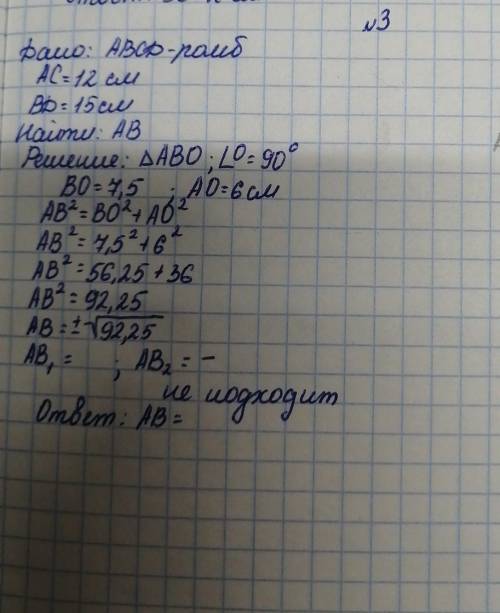 №3
Дано: ABCD-ромб
AC=12 см
BD=15 см
Найти: AB
Решение: ΔABO; ∠O=90°
BO=7,5 ; AO=6 см
AB²=BO²+AO²
AB²=7,5²+6²
AB²=56,25+36
AB²=92,25
AB=±√92,25
AB₁= ; AB₂=-
не подходит
Ответ: AB=